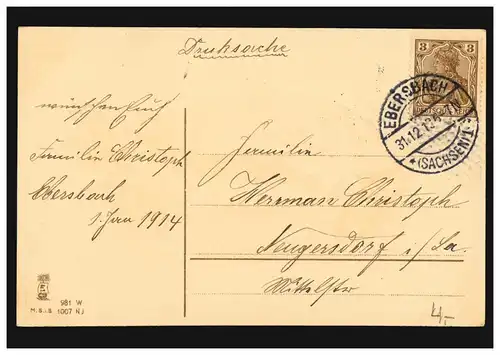 Drucksache
3
EBERSBACH
31.12.13.
*(SACHSEN)
wünschen Euch
Familie Christoph
Ebersbach
1. Jan 1914
Familie
Herrman Christoph
Neugersdorf i/Sa.
Mittelstr
981 W
M.S.i.S 1007 NJ
4,-